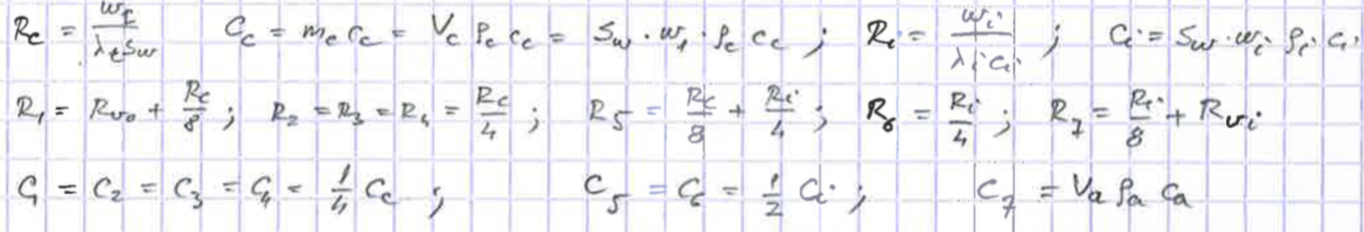 R_c = w_c / λ_c S_w   C_c = m_c c_c = V_c ρ_c c_c = S_w · w_1 · ρ_c c_c ; R_i = w_i / λ_i c_i ; C_i = S_w · w_i ρ_i c_i
R_1 = R_vo + R_c/8 ; R_2 = R_3 = R_4 = R_c/4 ; R_5 = R_c/8 + R_i/4 ; R_6 = R_i/4 ; R_7 = R_i/8 + R_vi
C_1 = C_2 = C_3 = C_4 = 1/4 C_c ; C_5 = C_6 = 1/2 C_i ; C_7 = V_a ρ_a c_a